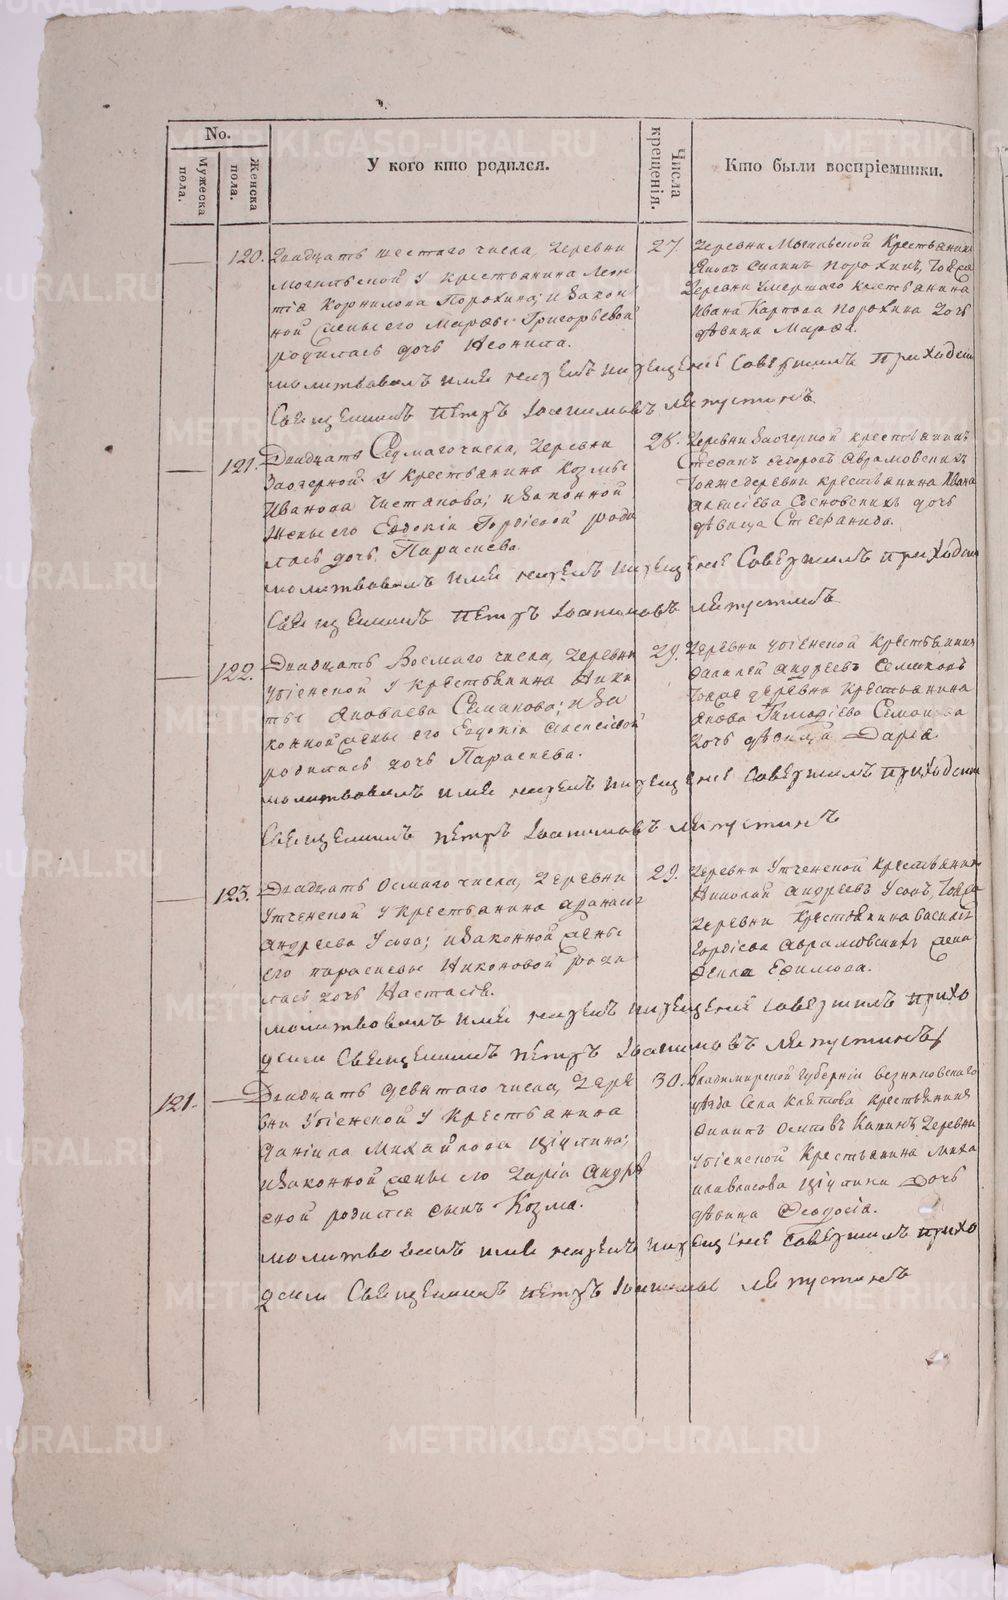 No.
Мужеска пола.
Женска пола.
У кого кто родился.
Числа крещенія.
Кто были воспріемники.
120.
Двадцать шестаго числа, деревни
Могильской у крестьянина Леон
тія Корнилова Порохина; и закон
ной жены его Марѳы Григорьевой
родилась дочь Неонила.
27
Деревни Мыльской Крестьянинъ
Порохинъ, тояже
деревни умершаго крестьянина
Ивана Карпова Порохина дочь
дѣвица Марѳа.
молитвовалъ имя нарекъ и крещеніе совершилъ приходскій
Священникъ Петръ Іоакимовъ Ляпустинъ
121.
Двадцать Седмаго числа, деревни
Заозерной у Крестьянина Козмы
Иванова Чистякова; и законной
жены его Евдокіи Гордіевой роди
лась дочь Параскева.
28.
Деревни Заозерной крестьянинъ
Стефанъ Ѳедоровъ Аврамовскихъ
тояже деревни крестьянина Ивана
Алексіева Сосновскихъ дочь
дѣвица Стефанида.
молитвовалъ имя нарекъ и крещеніе Совершилъ приходскій
Священникъ Петръ Іоакимовъ Ляпустинъ
122.
Двадцать Восмаго числа, деревни
у Крестьянина Ники
ты Яковлева Симакова; и за
конной жены его Евдокіи Алексіевой
родилась дочь Параскева.
29.
Деревни Крестьянинъ
Андреевъ Семаковъ
тояже деревни Крестьянина
Якова Тимоѳіева Семакова
дочь дѣвица Дарія.
молитвовалъ имя нарекъ и крещеніе совершилъ приходскій
Священникъ Петръ Іоакимовъ Ляпустинъ
123.
Двадцать осмаго числа, деревни
Утченской у Крестьянина Аѳанасія
Андреева Усова; и законной жены
его Параскевы Никоновой роди
лась дочь Настасія.
29.
Деревни Утченской Крестьянинъ
Николай Андреевъ Усовъ, тояже
деревни Крестьянина Василія
Гордіева Аврамовскихъ жена
Ѳекла Ефимова.
молитвовалъ имя нарекъ и крещеніе совершилъ прихо
дскій Священникъ Петръ Іоакимовъ Ляпустинъ
121.
Двадцать девятаго числа, дере
вни у Крестьянина
Даніила Михайлова Щуплина;
и законной жены его Даріи Андре
евой родился сынъ Козма.
30.
Владимирской Губерніи Везниковскаго
уѣзда Села крестьянинъ
Филипъ Осиповъ деревни
Крестьянина Миха
ила дочь
дѣвица Ѳеодосія.
молитвовалъ имя нарекъ и крещеніе совершилъ прихо
дскій Священникъ Петръ Іоакимовъ Ляпустинъ
METRIKI.GASO-URAL.RU